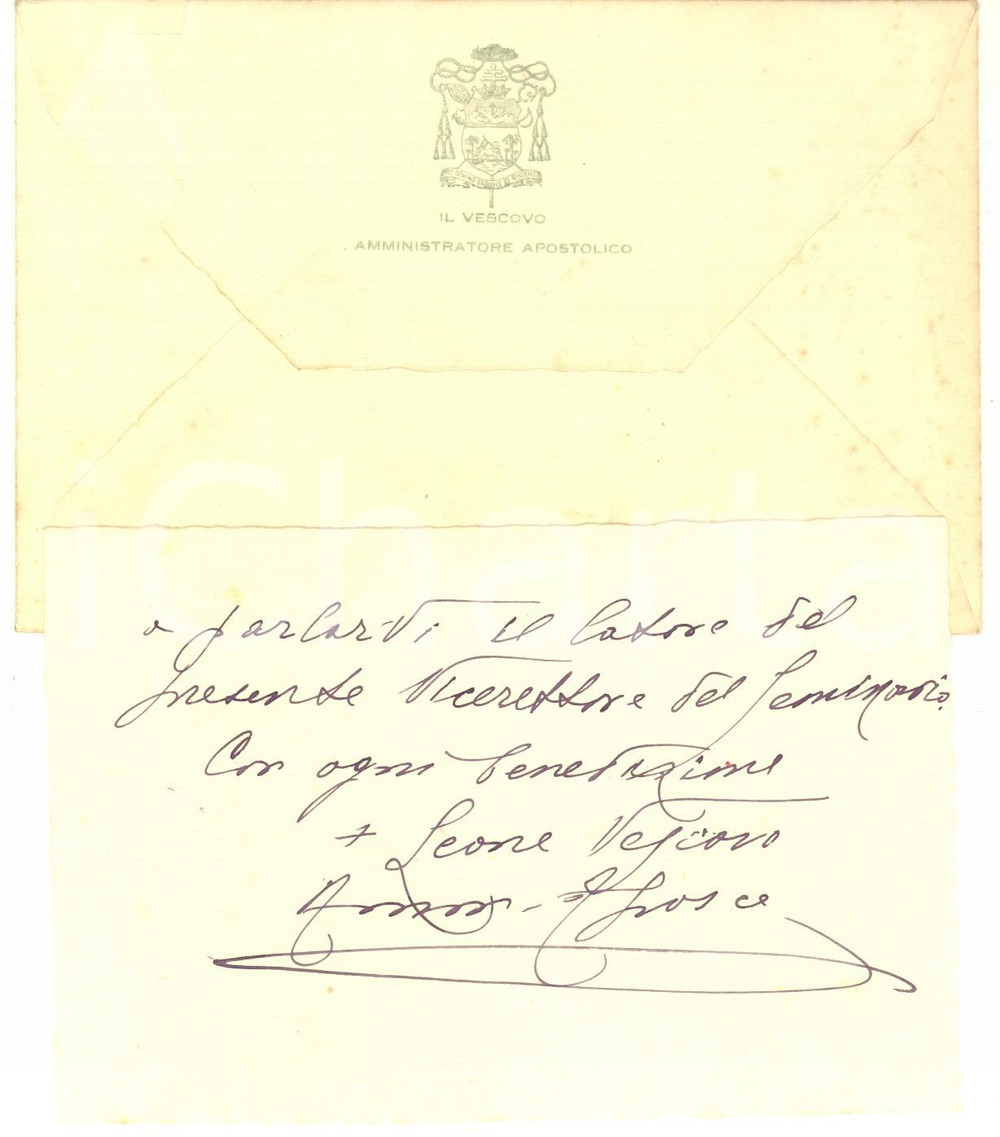 IL VESCOVO
AMMINISTRATORE APOSTOLICO
iCharta
a parlarvi il latore del
presente Vicerettore del Seminario.
Con ogni benedizione
+ Leone Vescovo